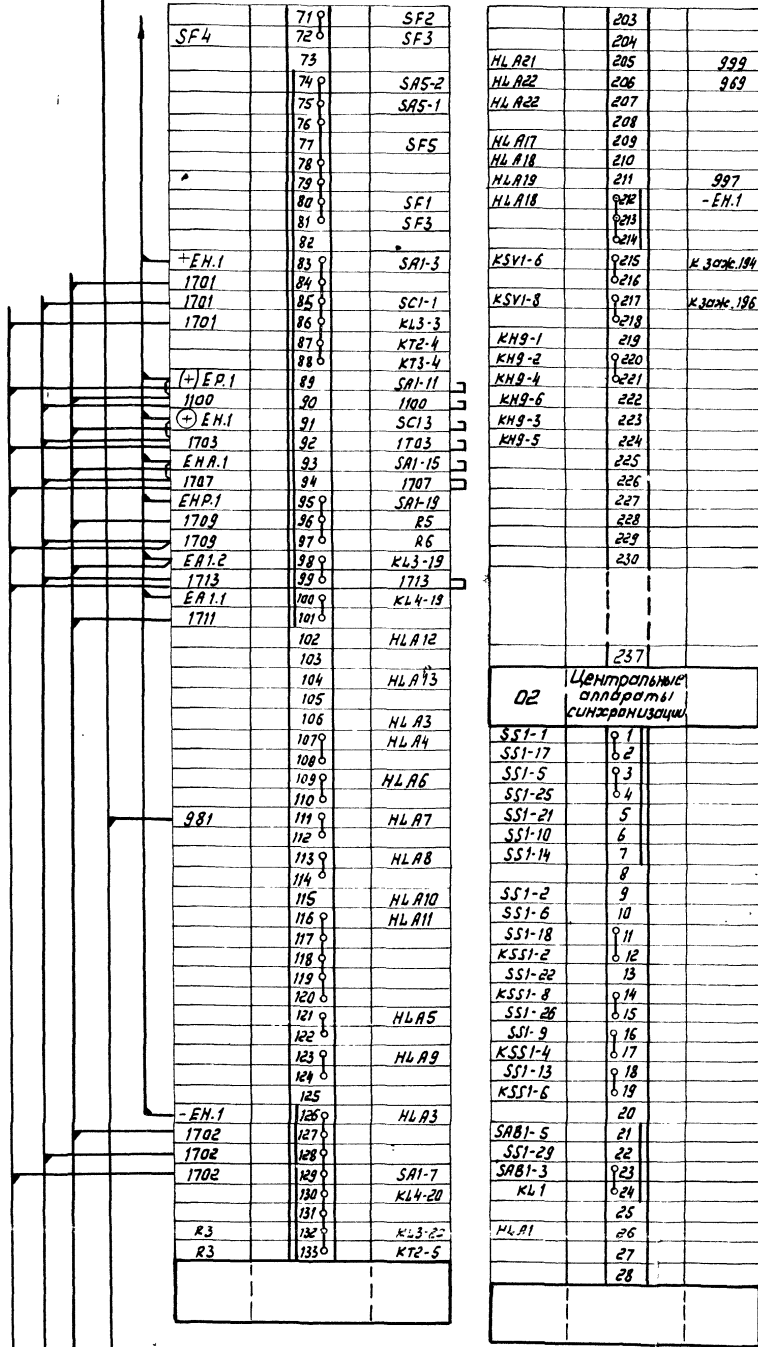 71 SF2
SF4 72 SF3
73
74 SA5-2
75 SA5-1
76
77 SF5
78
79
80 SF1
81 SF3
82
+EH.1 83 SA1-3
1701 84
1701 85 SC1-1
1701 86 KL3-3
87 KT2-4
88 KT3-4
(+) EP.1 89 SA1-11
1100 90 1100
(+) EH.1 91 SC13
1703 92 1703
EHA.1 93 SA1-15
1707 94 1707
EHP.1 95 SA1-19
1709 96 R5
1709 97 R6
EA1.2 98 KL3-19
1713 99 1713
EA1.1 100 KL4-19
1711 101
102 HLA12
103
104 HLA13
105
106 HLA3
107 HLA4
108
109 HLA6
110
981 111 HLA7
112
113 HLA8
114
115 HLA10
116 HLA11
117
118
119
120
121 HLA5
122
123 HLA9
124
125
-EH.1 126 HLA3
1702 127
1702 128
1702 129 SA1-7
130 KL4-20
131
R3 132
R3 133 KT2-5
203
204
HLA21 205 999
HLA22 206 969
HLA22 207
208
HLA17 209
HLA18 210
HLA19 211 997
HLA18 212 -EH.1
213
214
KSV1-6 215 к заж.194
216
KSV1-8 217 к заж.196
218
KH9-1 219
KH9-2 220
KH9-4 221
KH9-6 222
KH9-3 223
KH9-5 224
225
226
227
228
229
230
237
02 Центральные
аппараты
синхронизации
SS1-1 1
SS1-17 2
SS1-5 3
SS1-25 4
SS1-21 5
SS1-10 6
SS1-14 7
8
SS1-2 9
SS1-6 10
SS1-18 11
KSS1-2 12
SS1-22 13
KSS1-8 14
SS1-26 15
SS1-9 16
KSS1-4 17
SS1-13 18
KSS1-6 19
20
SAB1-5 21
SS1-29 22
SAB1-3 23
KL1 24
25
HLA1 26
27
28